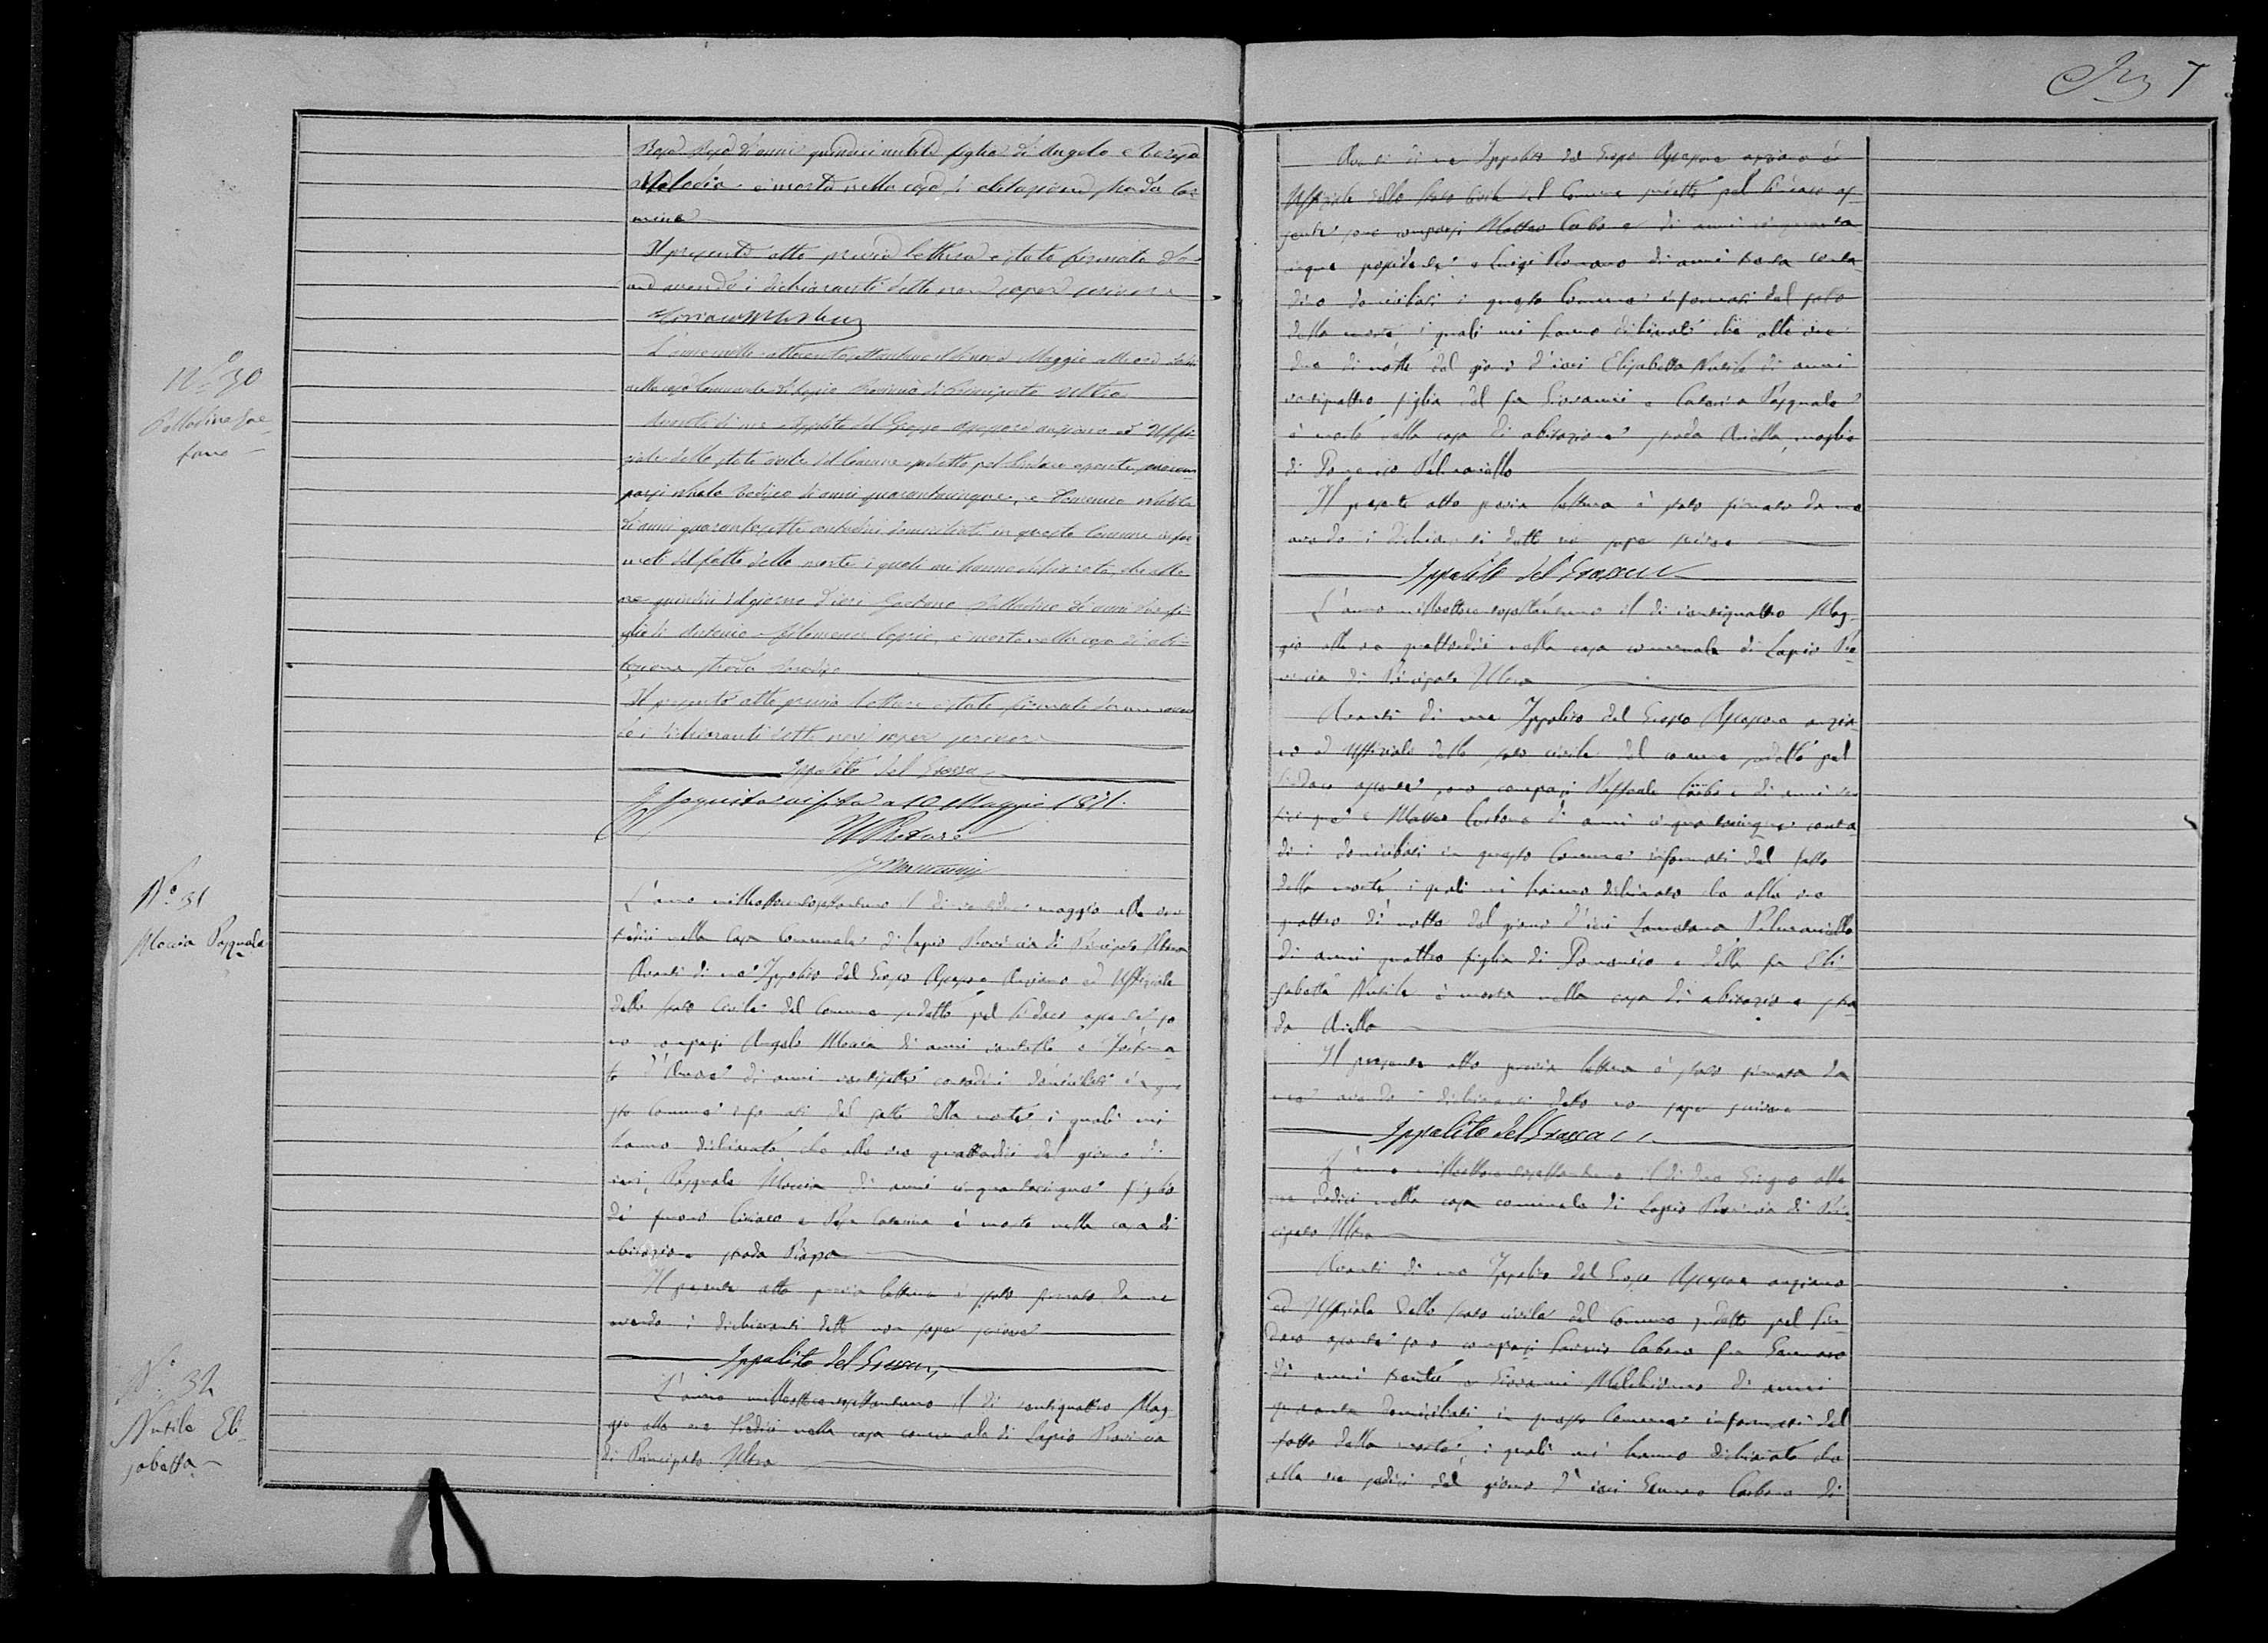 7
Rosa di anni quindici nubile figlia di Angelo e Teresa
è morta nella casa di abitazione strada Car-
mine
Il presente atto previa lettura è stato firmato da
me avendo i dichiaranti detto non saper scrivere
N.º 30
Palladino Gae-
tano
L'anno mille ottocento settantuno il dì nove Maggio alle ore
nella casa Comunale di Lapio Provincia di Principato Ultra
Avanti di me Ippolito del Grosso Assessore anziano ed Uffi-
ziale dello stato civile del Comune sudetto pel Sindaco assente, sono com-
parsi di anni quarantacinque, e Domenico
di anni quarantasette contadini domiciliati in questo Comune infor-
mati del fatto della morte i quali mi hanno dichiarato, che alle
ore quindici del giorno d'ieri Gaetano Palladino di anni due fi-
glio di Antonio e Filomena Caprio, è morto nella casa di abi-
tazione strada
Il presente atto previa lettura è stato firmato da me aven-
do i dichiaranti detto non saper scrivere
Ippolito del Grosso
Seguita visita a 10 Maggio 1871.
Il Pretore
N.º 31
Moccia Pasquale
L'anno milleottocentosettantuno il dì ventidue maggio alle ore
tredici nella Casa Comunale di Lapio Provincia di Principato Ultra
Avanti di me Ippolito del Grosso Assessore Anziano ed Uffiziale
dello stato Civile del Comune sudetto pel Sindaco assente so
no comparsi Angelo Moccia di anni e Fortuna-
to di anni ventisette contadini domiciliati in que
sto Comune informati del fatto della morte i quali mi
hanno dichiarato che alle ore quattordici del giorno di
ieri, Pasquale Moccia di anni cinquantacinque figlio
di furono Ciriaco e Rosa Caterina è morto nella casa di
abitazione strada Piazza
Il presente atto previa lettura è stato firmato da me
avendo i dichiaranti detto non saper scrivere
Ippolito del Grosso
N.º 32
Nutile Eli-
sabetta
L'anno milleottocentosettantuno il dì ventiquattro Mag
gio alle ore tredici nella casa comunale di Lapio Provincia
di Principato Ultra
Avanti di me Ippolito del Grosso Assessore anziano ed
Uffiziale dello stato Civile del Comune sudetto pel Sindaco as-
sente sono comparsi Matteo Carbone di anni cinquanta
cinque possidente e Luigi Romano di anni trenta conta-
dino domiciliati in questo Comune informati del fatto
della morte, i quali mi hanno dichiarato che alle ore
due di notte del giorno d'ieri Elisabetta Nutile di anni
ventiquattro figlia del fu Giovanni e Caterina Pasquale
è morta nella casa di abitazione strada Ariella, moglie
di Domenico Palmariello
Il presente atto previa lettura è stato firmato da me
avendo i dichiaranti detto non saper scrivere
Ippolito del Grosso
L'anno milleottocentosettantuno il dì ventiquattro Mag-
gio alle ore quattordici nella casa comunale di Lapio Pro-
vincia di Principato Ultra
Avanti di me Ippolito del Grosso Assessore anzia-
no ed Uffiziale dello stato civile del comune sudetto pel
Sindaco assente sono comparsi Pasquale Carbone di anni
e Matteo Carbone di anni cinquantacinque conta-
dini domiciliati in questo Comune informati del fatto
della morte i quali mi hanno dichiarato che alle ore
quattro di notte del giorno d'ieri Palmariello
di anni quattro figlia di Domenico e della fu Eli-
sabetta Nutile è morta nella casa di abitazione stra-
da Ariella
Il presente atto previa lettura è stato firmato da
me avendo i dichiaranti detto non saper scrivere
Ippolito del Grosso
L'anno milleottocentosettantuno il dì due Giugno alle
ore dodici nella casa comunale di Lapio Provincia di Prin-
cipato Ultra
Avanti di me Ippolito del Grosso Assessore anziano
ed Uffiziale dello stato civile del Comune sudetto pel Sin-
daco assente sono comparsi fu Gennaro
di anni trenta e Giovanni Melchionno di anni
quaranta domiciliati in questo Comune informati del
fatto della morte, i quali mi hanno dichiarato che
alle ore sedici del giorno d'ieri Gennaro Carbone di